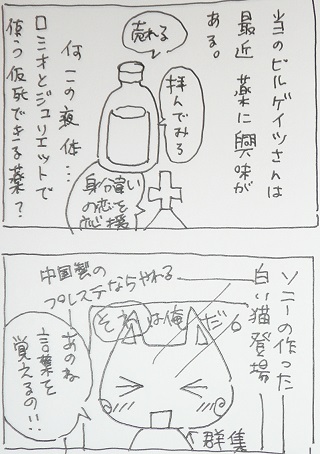 当のビルゲイツさんは
最近 薬に興味が
ある。
売れる
拝んでみろ
何この液体…
ロミオとジュリエットで
使う仮死できる薬?
身分違い
の恋を
応援
ソニーの作った
白い猫登場
中国製の
プレステならやれる
それは俺だ。
あのね
言葉を
覚えるの!!
↑群集